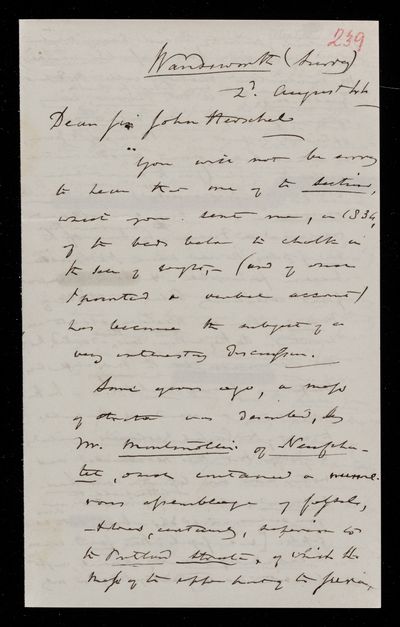 239
Wandsworth (Surrey)
2d. August 44
Dear Sir John Herschel
"You will not be sorry
to hear that one of the sections,
which you sent me, in 1834,
of the beds below the chalk in
the Isle of Wight, – (and of which
I printed a verbal account)
has become the subject of a
very interesting discussion.
Some years ago, a mass
of strata was described, by
Mr. Montmollin of Neufcha-
tel, which contained a nume-
rous assemblage of fossils,
certainly, superior to
the Portland strata, of which the
mass of the upper